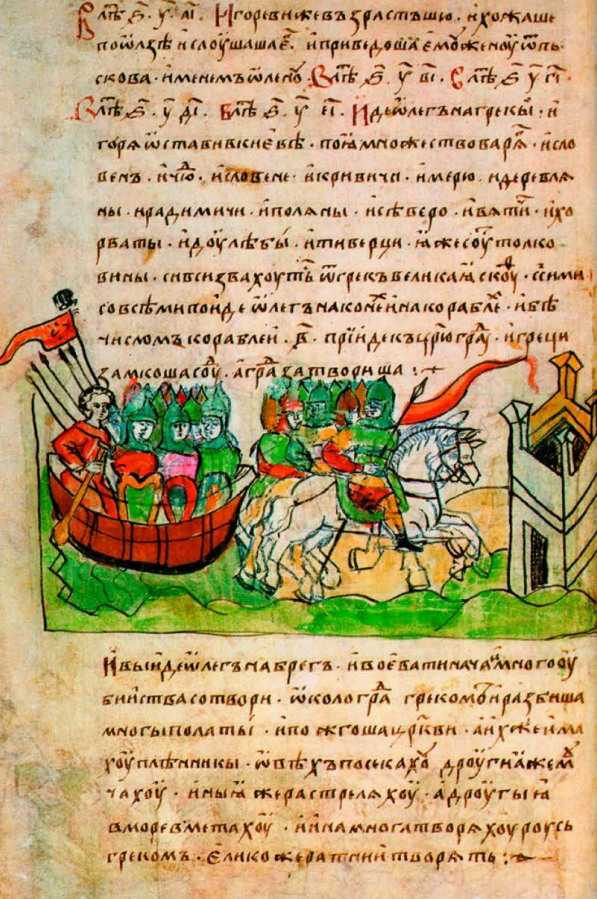 В лѣт҃ ҂ѕ҃ у҃ аі҃ · Игоревижевъзрастъшю · ихожаше
поѡлзѣ ислоушашаег҃ · иприведошаемоуженоуѿпь
скова · именемъѡленоу · В лѣт҃ ҂ѕ҃ у҃ ві҃ · В лѣт҃ ҂ѕ҃ у҃ гі҃ ·
В лѣт҃ ҂ѕ҃ у҃ ді҃ · В лѣт҃ ҂ѕ҃ у҃ еі҃ · Идеѡлегънагрекы · и
горяѡставивкиевѣ · поꙗмножествоварѧг · исло
венъ · ичюд · исловене · икривичи · имерю · идеревлѧ
ны · ирадимичи · иполѧны · исѣверо · ивѧтич · ихо
рваты · идоулѣбы · итиверци · ꙗжесоутьтолко
вины · сивсизвахоутьѿгрекъвеликаꙗскоуф · ссими
совсѣмипоидеѡлегънаконехинакораблех · ибѣ
числомъкораблей · в҃ · прїидекъцр҃югра҃ду · игреци
замкошасоуд · агра҃дзатвориша :·
Ивыидеѡлегънабрегъ · ивоеватиначатимногооу
биистватсотвори · ѡкологра҃да грекомъиразбиша
многыполаты · ипожгошацр҃кви · аихжеима
хоуплѣнникы · ѡвѣхъпосекахоу дроугиꙗжемоу
чахоу · иныꙗжерастрелѧхоу · адроугыꙗ
вморевъметахоу · иинамноготворѧхоуроусь
грекомъ · еликожератнитворѧть :·